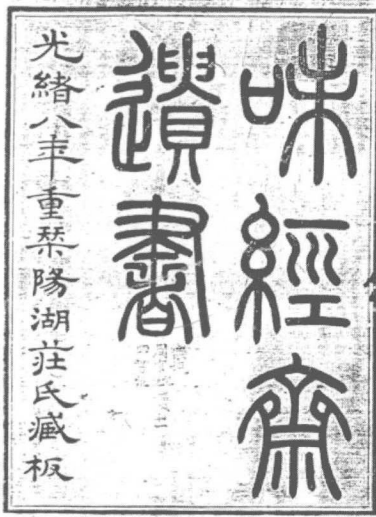 味經齋
遺書
光緒八年重栞陽湖莊氏藏板